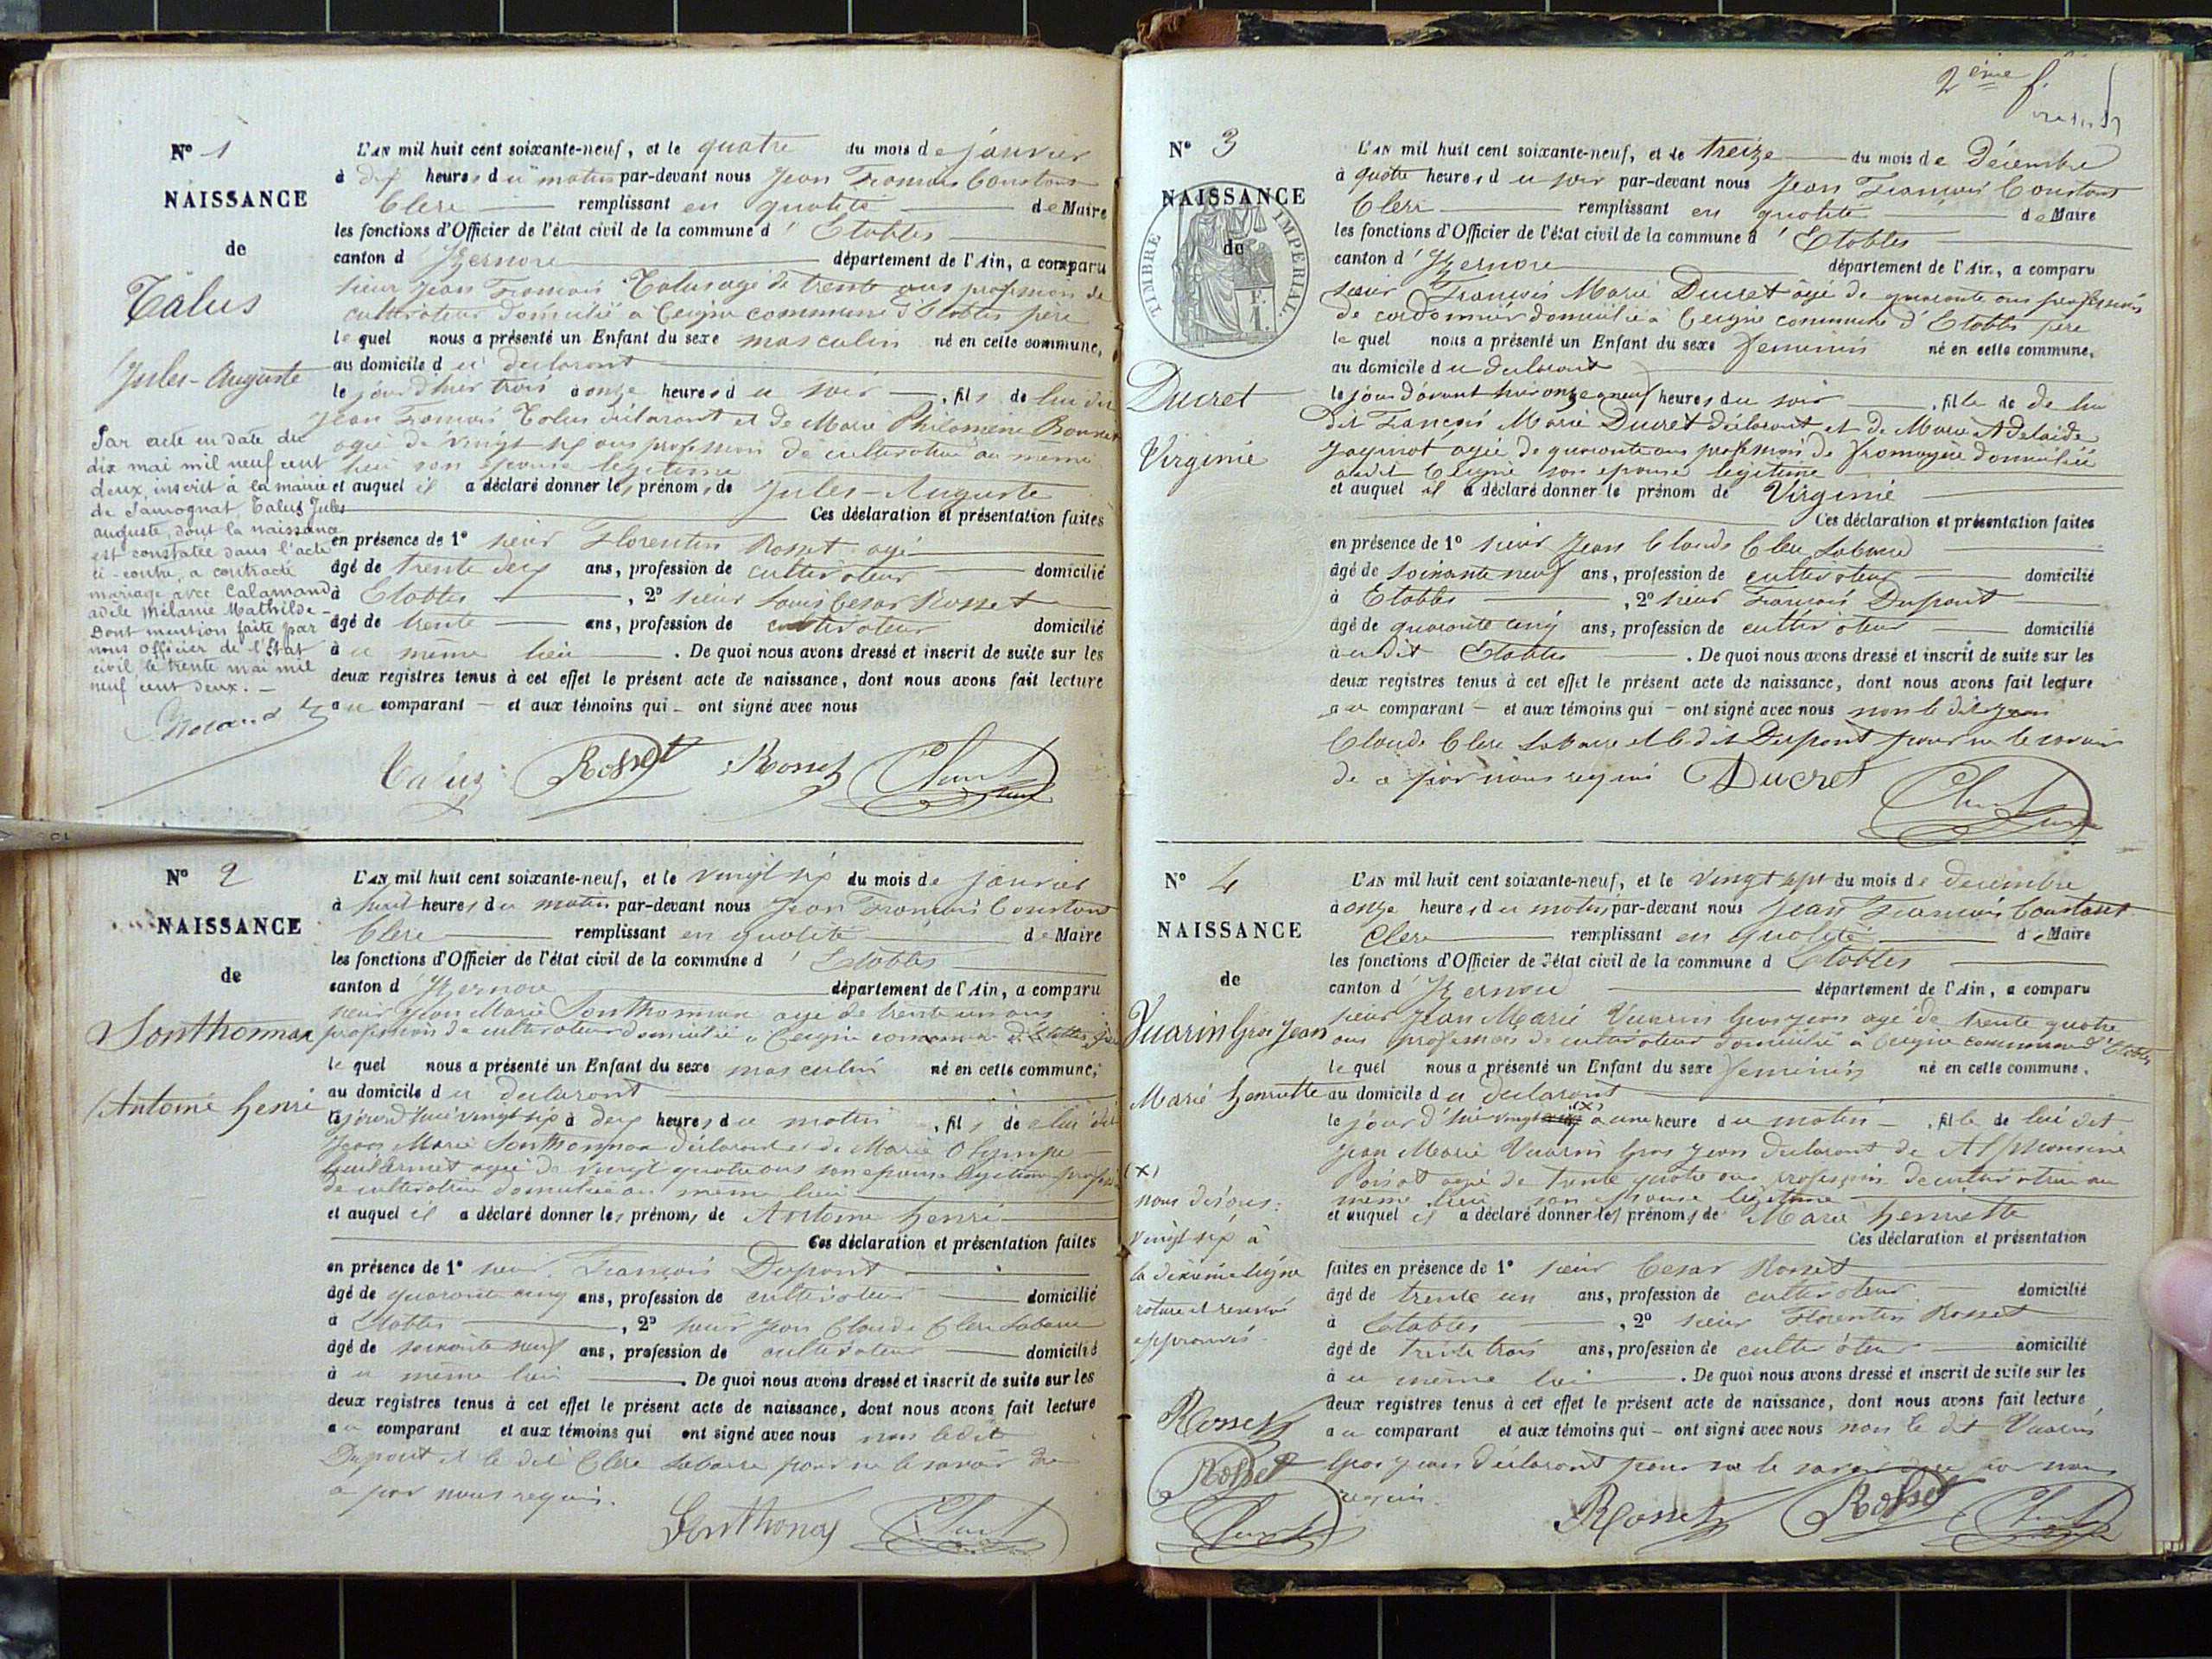 N° 1
NAISSANCE
de
Talus
Jules-Auguste
Par acte en date du
dix mai mil neuf cent
deux, inscrit à la mairie
de Samognat, Talus Jules
auguste, dont la naissance
est constatée dans l'acte
ci-contre, a contracté
mariage avec Calamand
adèle mélanie Mathilde -
Dont mention faite par
nous Officier de l'Etat
civil le trente mai mil
neuf cent deux. -
L'AN mil huit cent soixante-neuf, et le quatre du mois de janvier
à dix heures du matin par-devant nous Jean François Constant
Clerc remplissant en qualité de Maire
les fonctions d'Officier de l'état civil de la commune d'Etables
canton d'Izernore département de l'Ain, a comparu
sieur Jean François Talus agé de trente ans profession de
cultivateur domicilié à Ceignes commune d'Etables père
lequel nous a présenté un Enfant du sexe masculin né en cette commune,
au domicile du déclarant
le jour d'hier trois à onze heures du soir, fils de lui dit
Jean François Talus déclarant et de Marie Philomène
agée de vingt six ans profession de cultivatrice au même
lieu son épouse légitime
et auquel il a déclaré donner les prénoms de Jules-Auguste
Ces déclaration et présentation faites
en présence de 1° sieur Florentin Rosset agé
âgé de trente deux ans, profession de cultivateur domicilié
à Etables, 2° sieur Louis Cesar Rosset
âgé de trente ans, profession de cultivateur domicilié
à u même lieu. De quoi nous avons dressé et inscrit de suite sur les
deux registres tenus à cet effet le présent acte de naissance, dont nous avons fait lecture
au comparant - et aux témoins qui - ont signé avec nous
Talus Rosset Rosset
N° 2
NAISSANCE
de
Sonthonnax
Antoine henri
L'AN mil huit cent soixante-neuf, et le vingt six du mois de janvier
à huit heures du matin par-devant nous Jean François Constant
Clerc remplissant en qualité de Maire
les fonctions d'Officier de l'état civil de la commune d'Etables
canton d'Izernore département de l'Ain, a comparu
sieur Jean Marie Sonthonnax agé de trente un ans
profession de cultivateur domicilié à Ceignes commune d'Etables père
lequel nous a présenté un Enfant du sexe masculin né en cette commune,
au domicile du déclarant
le jour d'hui vingt six à deux heures du matin, fils de lui dit
Jean Marie Sonthonnax déclarant et de Marie Olympe
Guillermet agée de vingt quatre ans son épouse légitime
de cultivatrice domiciliée au même lieu
et auquel il a déclaré donner les prénoms de Antoine henri
Ces déclaration et présentation faites
en présence de 1° sieur François Dupont
âgé de quarante cinq ans, profession de cultivateur domicilié
à Etables, 2° sieur Jean Claude Clerc Labarre
âgé de soixante neuf ans, profession de cultivateur domicilié
à u même lieu. De quoi nous avons dressé et inscrit de suite sur les
deux registres tenus à cet effet le présent acte de naissance, dont nous avons fait lecture
au comparant et aux témoins qui ont signé avec nous non ledit
Dupont et le dit Clerc Labarre pour ne le savoir de
ce par nous requis.
Sonthonax
2ème f.
N° 3
NAISSANCE
de
TIMBRE IMPERIAL
Ducret
Virginie
L'AN mil huit cent soixante-neuf, et le treize du mois de Décembre
à quatre heures du soir par-devant nous Jean François Constant
Clerc remplissant en qualité de Maire
les fonctions d'Officier de l'état civil de la commune d'Etables
canton d'Izernore département de l'Ain, a comparu
sieur François Marie Ducret âgé de quarante ans profession
de cordonnier domicilié à Ceignes commune d'Etables père
lequel nous a présenté un Enfant du sexe feminin né en cette commune,
au domicile du déclarant
le jour d'avant hier onze à neuf heures du soir, fille de de lui
dit François Marie Ducret déclarant et de Marie Adelaïde
agée de quarante ans profession de domiciliée
audit Ceignes son épouse légitime
et auquel il a déclaré donner le prénom de Virginie
Ces déclaration et présentation faites
en présence de 1° sieur Jean Claude Clerc Labarre
âgé de soixante neuf ans, profession de cultivateur domicilié
à Etables, 2° sieur François Dupont
âgé de quarante cinq ans, profession de cultivateur domicilié
à udit Etables. De quoi nous avons dressé et inscrit de suite sur les
deux registres tenus à cet effet le présent acte de naissance, dont nous avons fait lecture
au comparant - et aux témoins qui - ont signé avec nous non le dit Jean
Claude Clerc Labarre et le dit Dupont pour ne le savoir
de ce par nous requis Ducret
N° 4
NAISSANCE
de
Vuarin Gros Jean
Marie henriette
(x)
nous disons:
vingt six à
la dixième ligne
rature et renvoi
approuvés.
Rosset
Rosset
L'AN mil huit cent soixante-neuf, et le vingt sept du mois de décembre
à onze heures du matin par-devant nous Jean François Constant
Clerc remplissant en qualité de Maire
les fonctions d'Officier de l'état civil de la commune d Etables
canton d'Izernore département de l'Ain, a comparu
sieur Jean Marie Vuarin Gros Jean agé de trente quatre
ans profession de cultivateur domicilié à Ceignes commune d'Etables
lequel nous a présenté un Enfant du sexe feminin né en cette commune.
au domicile du déclarant
le jour d'hier vingt (x) à une heure du matin, fille de lui dit
Jean Marie Vuarin Gros Jean déclarant de Alphonsine
agée de trente quatre ans profession de cultivatrice au
même lieu son épouse légitime
et auquel il a déclaré donner les prénoms de Marie henriette
Ces déclaration et présentation
faites en présence de 1° sieur Cesar Rosset
âgé de trente un ans, profession de cultivateur domicilié
à Etables, 2° sieur Florentin Rosset
âgé de trente trois ans, profession de cultivateur domicilié
à u même lieu. De quoi nous avons dressé et inscrit de suite sur les
deux registres tenus à cet effet le présent acte de naissance, dont nous avons fait lecture
au comparant et aux témoins qui - ont signé avec nous non le dit Vuarin
Gros Jean déclarant pour ne le savoir par nous
requis.
Rosset Rosset